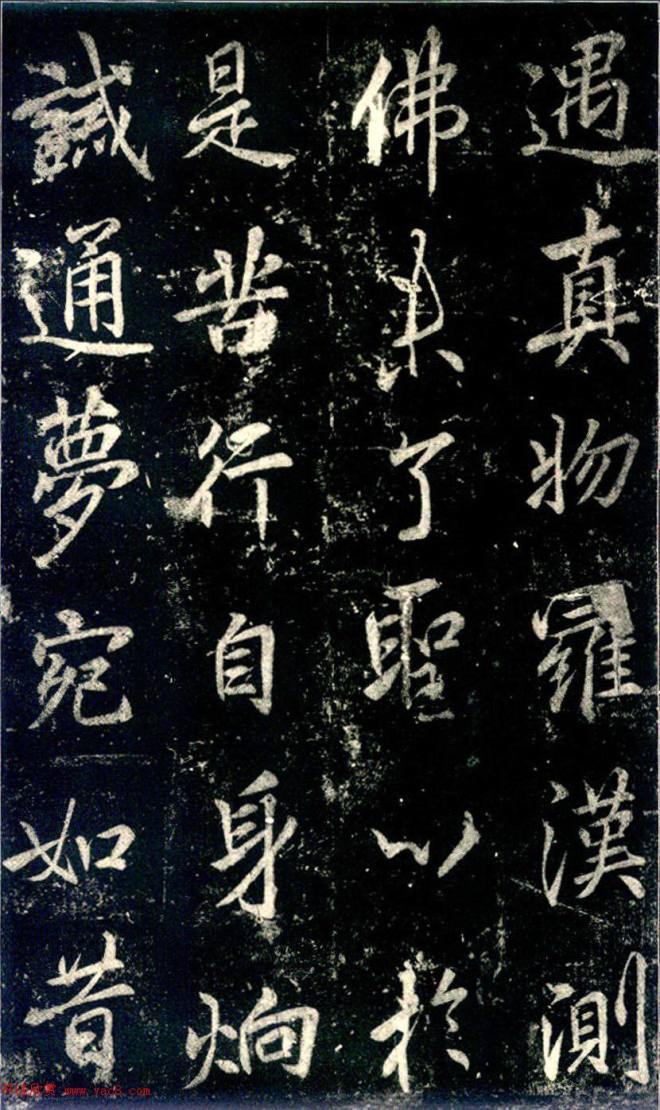 遇真物羅漢測
佛未了聖以於
是苦行自身炯
誠通夢宛如昔
书法欣赏 www.yac8.com